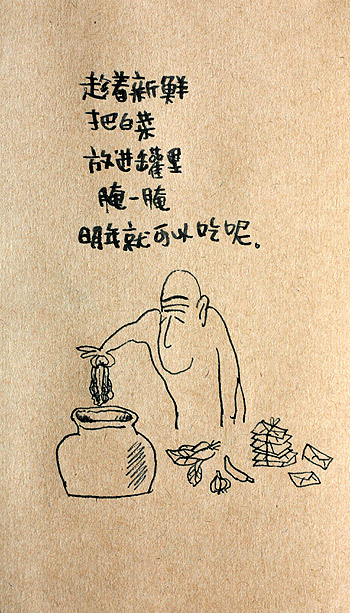 趁着新鮮
把白菜
放进罐里
腌一腌
明年就可以吃呢。